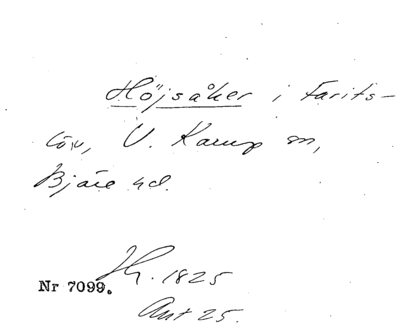 Höjsåker i Farits-
löv, V. Karup sn,
Bjäre hd.
Hr. 1825
Nr 7099.
Ant 25.